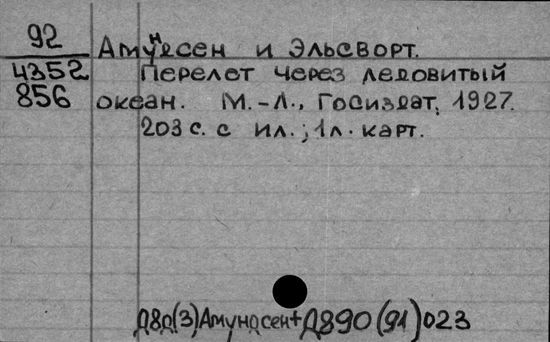 92
Амундсен и Эльсворт.
4352 Перелет через ледовитый
856 океан. М.-Л., Госиздат, 1927.
203 с. с ил.; 1 л. карт.
Д8д(3)Амундсен+Д890(91)023